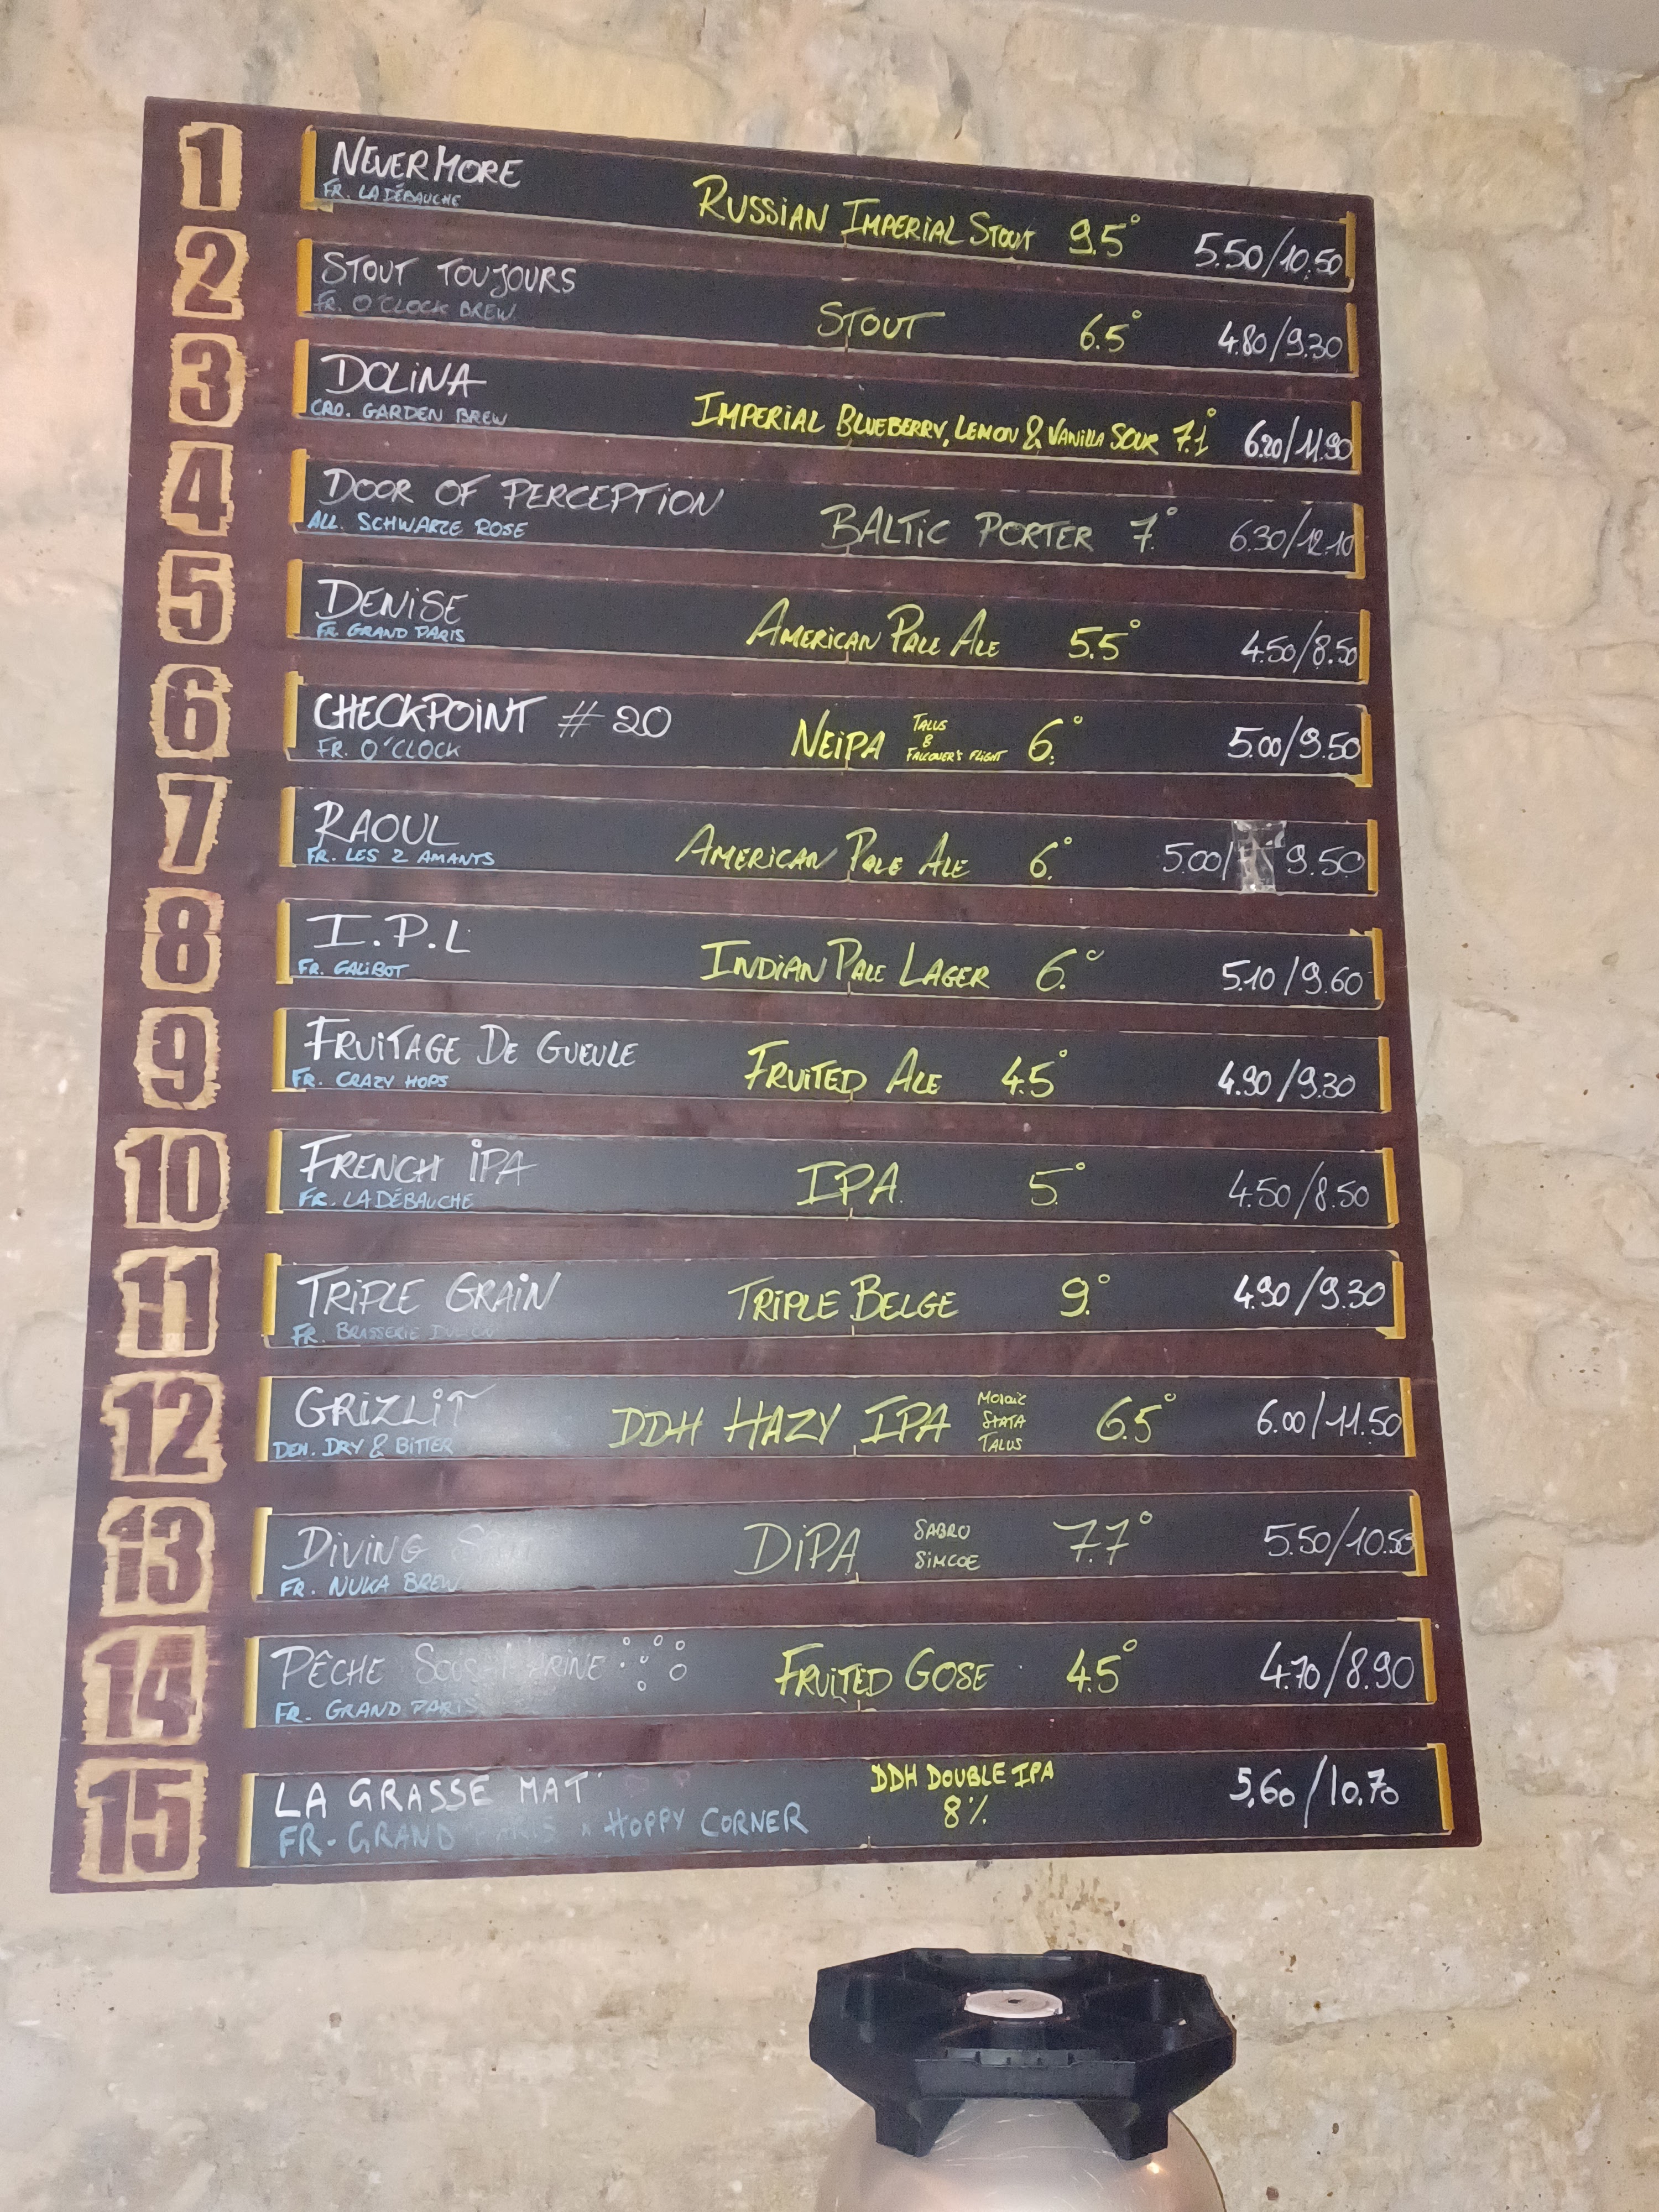 1 NEVERMORE RUSSIAN IMPERIAL STOUT 9.5° 5.50/10.50
FR. LA DÉBAUCHE
2 STOUT TOUJOURS STOUT 6.5° 4.80/9.30
FR. O'CLOCK BREW
3 DOLINA IMPERIAL BLUEBERRY, LEMON & VANILLA SOUR 7.1° 6.20/11.90
CRO. GARDEN BREW
4 DOOR OF PERCEPTION BALTIC PORTER 7.° 6.30/12.10
ALL. SCHWARZE ROSE
5 DENISE AMERICAN PALE ALE 5.5° 4.50/8.50
FR. GRAND PARIS
6 CHECKPOINT #20 NEIPA TALUS & FALCONER'S FLIGHT 6.° 5.00/9.50
FR. O'CLOCK
7 RAOUL AMERICAN PALE ALE 6.° 5.00/9.50
FR. LES 2 AMANTS
8 I.P.L INDIAN PALE LAGER 6.° 5.10/9.60
FR. GALIBOT
9 FRUITAGE DE GUEULE FRUITED ALE 4.5° 4.90/9.30
FR. CRAZY HOPS
10 FRENCH IPA IPA 5.° 4.50/8.50
FR. LA DÉBAUCHE
11 TRIPLE GRAIN TRIPLE BELGE 9.° 4.90/9.30
FR. BRASSERIE
12 GRIZLIT DDH HAZY IPA MOSAIC STATA TALUS 6.5° 6.00/11.50
DEN. DRY & BITTER
13 DIVING DIPA SABRO SIMCOE 7.7° 5.50/10.50
FR. NUKA BREW
14 PÊCHE FRUITED GOSE 4.5° 4.70/8.90
FR. GRAND PARIS
15 LA GRASSE MAT' DDH DOUBLE IPA 5.60/10.70
8%
FR-GRAND PARIS x HOPPY CORNER